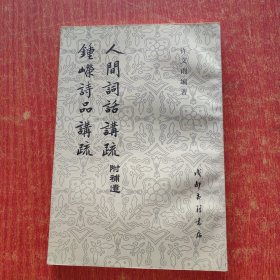 许文雨编著
人間詞話講疏附補遺
鍾嶸詩品講疏
成都古籍书店